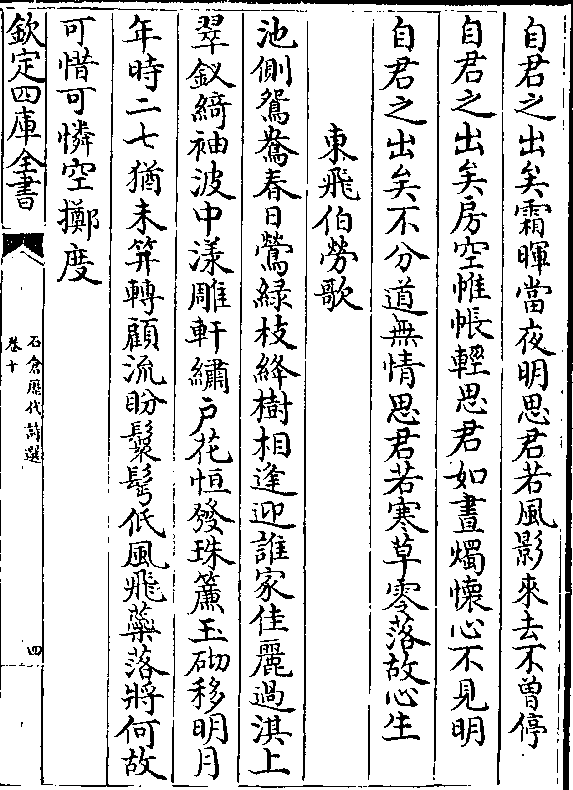 自君之出矣霜暉當夜明思君若風影來去不曾停
自君之出矣房空帷帳輕思君如晝燭懷心不見明
自君之出矣不分道無情思君若寒草零落故心生
東飛伯勞歌
池側鴛鴦春日鶯緑枝絳樹相逢迎誰家佳麗過淇上
翠釵綺袖波中漾雕軒繡户花恒發珠簾玉砌移明月
年時二七猶未笄轉顧流盼鬟髩低風飛蘂落將何故
可惜可憐空擲度
欽定四庫全書
石倉歷代詩選
卷十
四